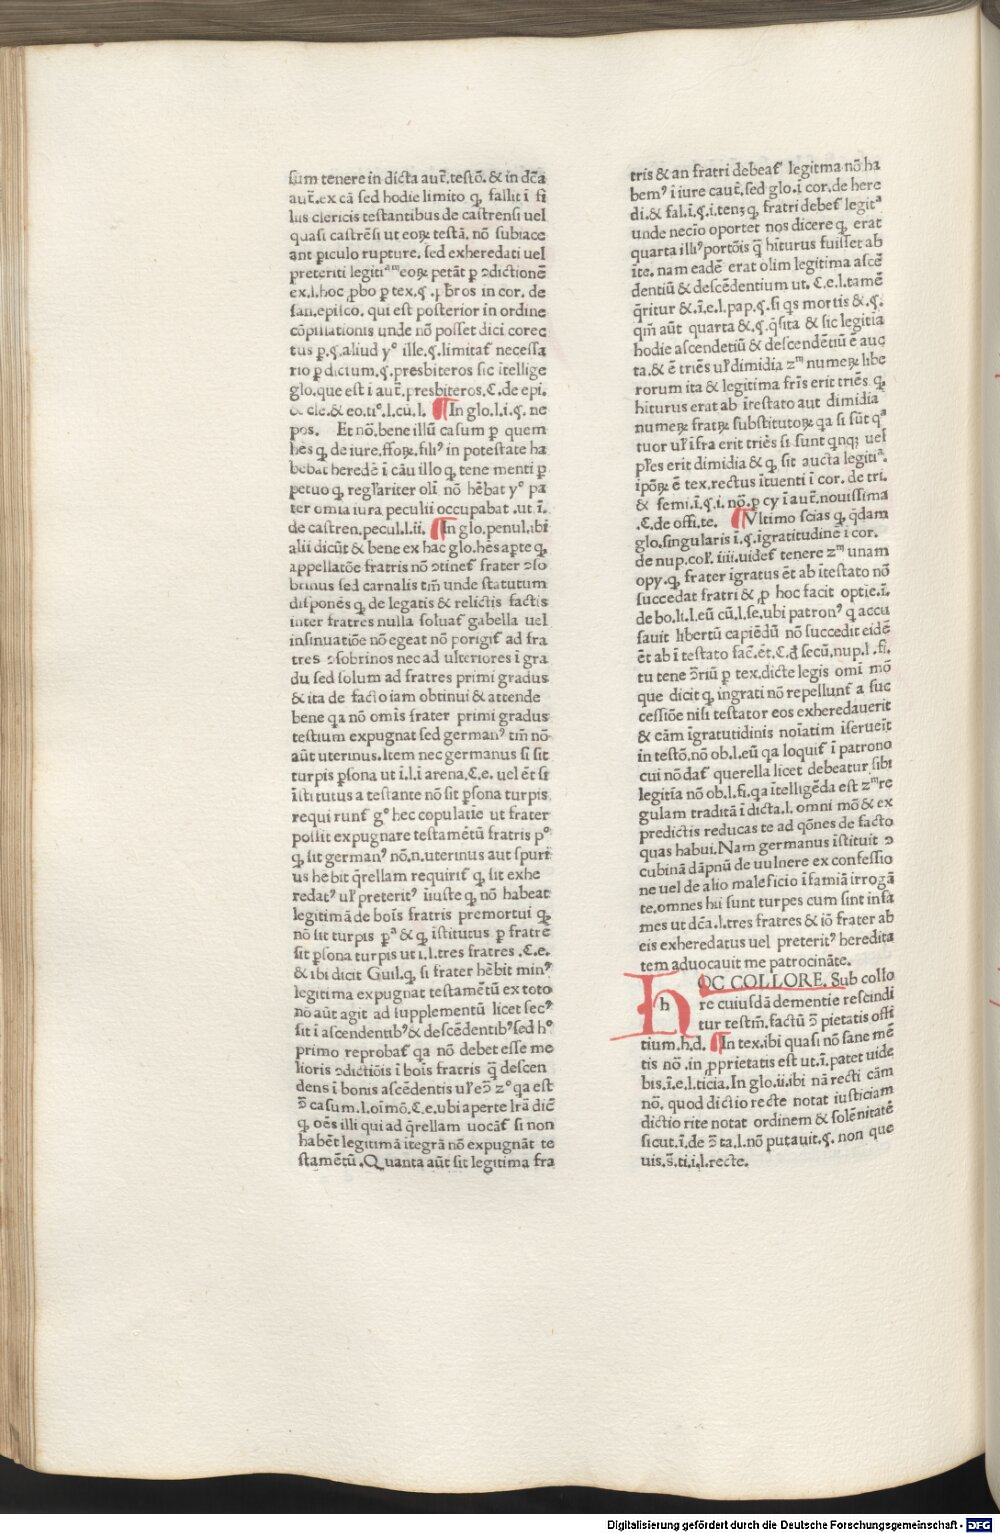 sum tenere in dicta aut̄.testō. & in dc̄a
aut̄.ex cā sed hodie limito ꝙ fallit ī fi
lius clericis testantibus de castrensi uel
quasi castrēsi ut eoꝝ testā. nō subiace
ant ꝑiculo rupture, sed exheredati uel
preteriti legitiᵃᵐ eoꝝ petāt ꝑ ↄdictionē
ex.l.hoc ꝓbo ꝑ tex.§. pbros in cor. de
san.episco. qui est posterior in ordine
cōpilationis unde nō posset dici corec
tus ꝑ.§.aliud yº ille.§.limitaẗ necessa
rio ꝑdictum.§.presbiteros sic ītellige
glo.que est ī aut̄.presbiteros.C.de epi.
& cle.& eo.tiº.l.cū.l. ¶In glo.l.i.§. ne
pos. Et nō.bene illū casum ꝑ quem
hēs ꝙ de iure.fforꝝ.filiꝰ in potestate ha
bebat heredē ī cāu illo ꝙ tene menti ꝑ
petuo ꝙ regl'ariter oli nō hēbat yº pa
ter omīa iura peculii occupabat .ut ī.
de castren.pecul.l.ii. ¶In glo.penul.ibi
alii dicūt & bene ex hac glo.hēs aperte ꝙ
appellatōe fratris nō ↄtineẗ frater ↄso
brinus sed carnalis tm̄ unde statutum
disponēs ꝙ de legatis & relictis factis
inter fratres nulla soluaẗ gabella uel
insinuatiōe nō egeat nō porigiẗ ad fra
tres ↄsobrinos nec ad ulteriores ī gra
du sed solum ad fratres primi gradus
& ita de facto iam obtinui & attende
bene qa nō omīs frater primi gradus
testium expugnat sed germanꝰ tm̄ nō
aūt uterinus. Item nec germanus si sit
turpis ꝑsona ut ī.l.ī arena.C.e. uel ēt si
īstitutus a testante nō sit ꝑsona turpis
requirunẗ gº hec copulatie ut frater
possit expugnare testamētū fratris pº
ꝙ sit germanꝰ nō.n.uterinus aut spuri
us hēbit q̄rellam requiriẗ ꝙ sit exhe
redatꝰ ul' preteritꝰ īiuste ꝙ nō habeat
legitimā de boīs fratris premortui ꝙ
nō sit turpis pᵃ & ꝙ īstitutus ꝑ fratrē
sit ꝑsona turpis ut ī.l.tres fratres .C.e.
& ibi dicit Guil.ꝙ si frater hēbit minꝰ
legitima expugnat testamētū ex toto
nō aūt agit ad supplementū licet secꝰ
sit ī ascendentibꝰ & descēdentibꝰ sed hº
primo reprobaẗ qa nō debet esse me
lioris ↄdictiōis ī boīs fratris q̄ descen
dens ī bonis ascēdentis ul' eↄ̄ zº qa est
ↄ̄ casum.l.oī mō.C.e.ubi aperte lrā dic̄
ꝙ oēs illi qui ad q̄rellam uocāẗ si non
habēt legitimā ītegrā nō expugnāt te
stamētū.Quanta aūt sit legitima fra
tris & an fratri debeaẗ legitma nō ha
bemꝰ ī iure caut̄.sed glo.ī cor.de here
di.& fal.ī.§.i.tenꝫ ꝙ fratri debeẗ legitᵃ
unde necīo oportet nos dicere ꝙ erat
quarta illiꝰ portōis q̄ hīturus fuisset ab
īte. nam eadē erat olim legitima ascē
dentiū & descēdentium ut. C.e.l.tamē
q̄ritur &.ī.e.l.pap.§.si qs mortis &.§.
qm̄ aūt quarta &.§.q̄sita & sic legitīa
hodie ascendētiū & descendētiū ē auc
ta.& ē triēs ul' dimidia zᵐ numeꝝ libe
rorum ita & legitima fr̄is erit triēs ꝙ
hīturus erat ab ītestato aut dimidia
numeꝝ fratꝝ substitutoꝝ qa si sūt qᵃ
tuor ul' īfra erit triēs si sunt qnqꝫ uel
pl'es erit dimidia & ꝙ sit aucta legitīᵃ.
īpōꝝ ē tex.rectus ītuenti ī cor. de tri.
& semi.ī.§.i. nō.ꝑ cy ī aut̄.nouissima
.C.de offi.te. ¶Vltimo scias ꝙ q̄dam
glo.singularis ī.§.īgratitudinē ī cor.
de nup.col'. iiii.uideẗ tenere zᵐ unam
opy.ꝙ frater īgratus ēt ab ītestato nō
succedat fratri & ꝓ hoc facit optīe.ī.
de bo.li.l.eū cū.l.se.ubi patronꝰ ꝙ accu
sauit libertū capiēdū nō succedit eidē
ēt ab ītestato fac̄.ēt.C.đ secū.nup.l.fi.
tu tene ↄ̄riū ꝑ tex.dicte legis omī mō
que dicit ꝙ ingrati nō repellunẗ a suc
cessiōe nisi testator eos exheredauerit
& cām īgratutidinis noīatim īserueīt
in testō.nō ob.l.eū qa loquiẗ ī patrono
cui nō daẗ querella licet debeatur sibi
legitīa nō ob.l.fi.qa ītelligēda est zᵐ re
gulam traditā ī dicta.l. omni mō & ex
predictis reducas te ad qōnes de facto
quas habui. Nam germanus īstituit ↄ
cubinā dāpnū de uulnere ex confessio
ne uel de alio maleficio īfamiā irrogā
te.omnes hii sunt turpes cum sint infa
mes ut dc̄a.l.tres fratres & iō frater ab
eis exheredatus uel preteritꝰ heredita
tem aduocauit me patrocināte.
h HOC COLLORE. Sub collo
re cuiusdā dementie rescindi
tur testm̄.factū ↄ̄ pietatis offi
tium.h.d. ¶In tex.ibi quasi nō sane mē
tis nō .in ꝓprietatis est ut.ī.patet uide
bis.ī.e.l.ticia.In glo.ii.ibi nā recti cām
nō, quod dictio recte notat iusticiam
dictio rite notat ordinem & solēnitatē
sicut.ī.de ↄ̄ ta.l.nō putauit.§. non que
uis.s̄.ti.i.l.recte.
Digitalisierung gefördert durch die Deutsche Forschungsgemeinschaft - DFG